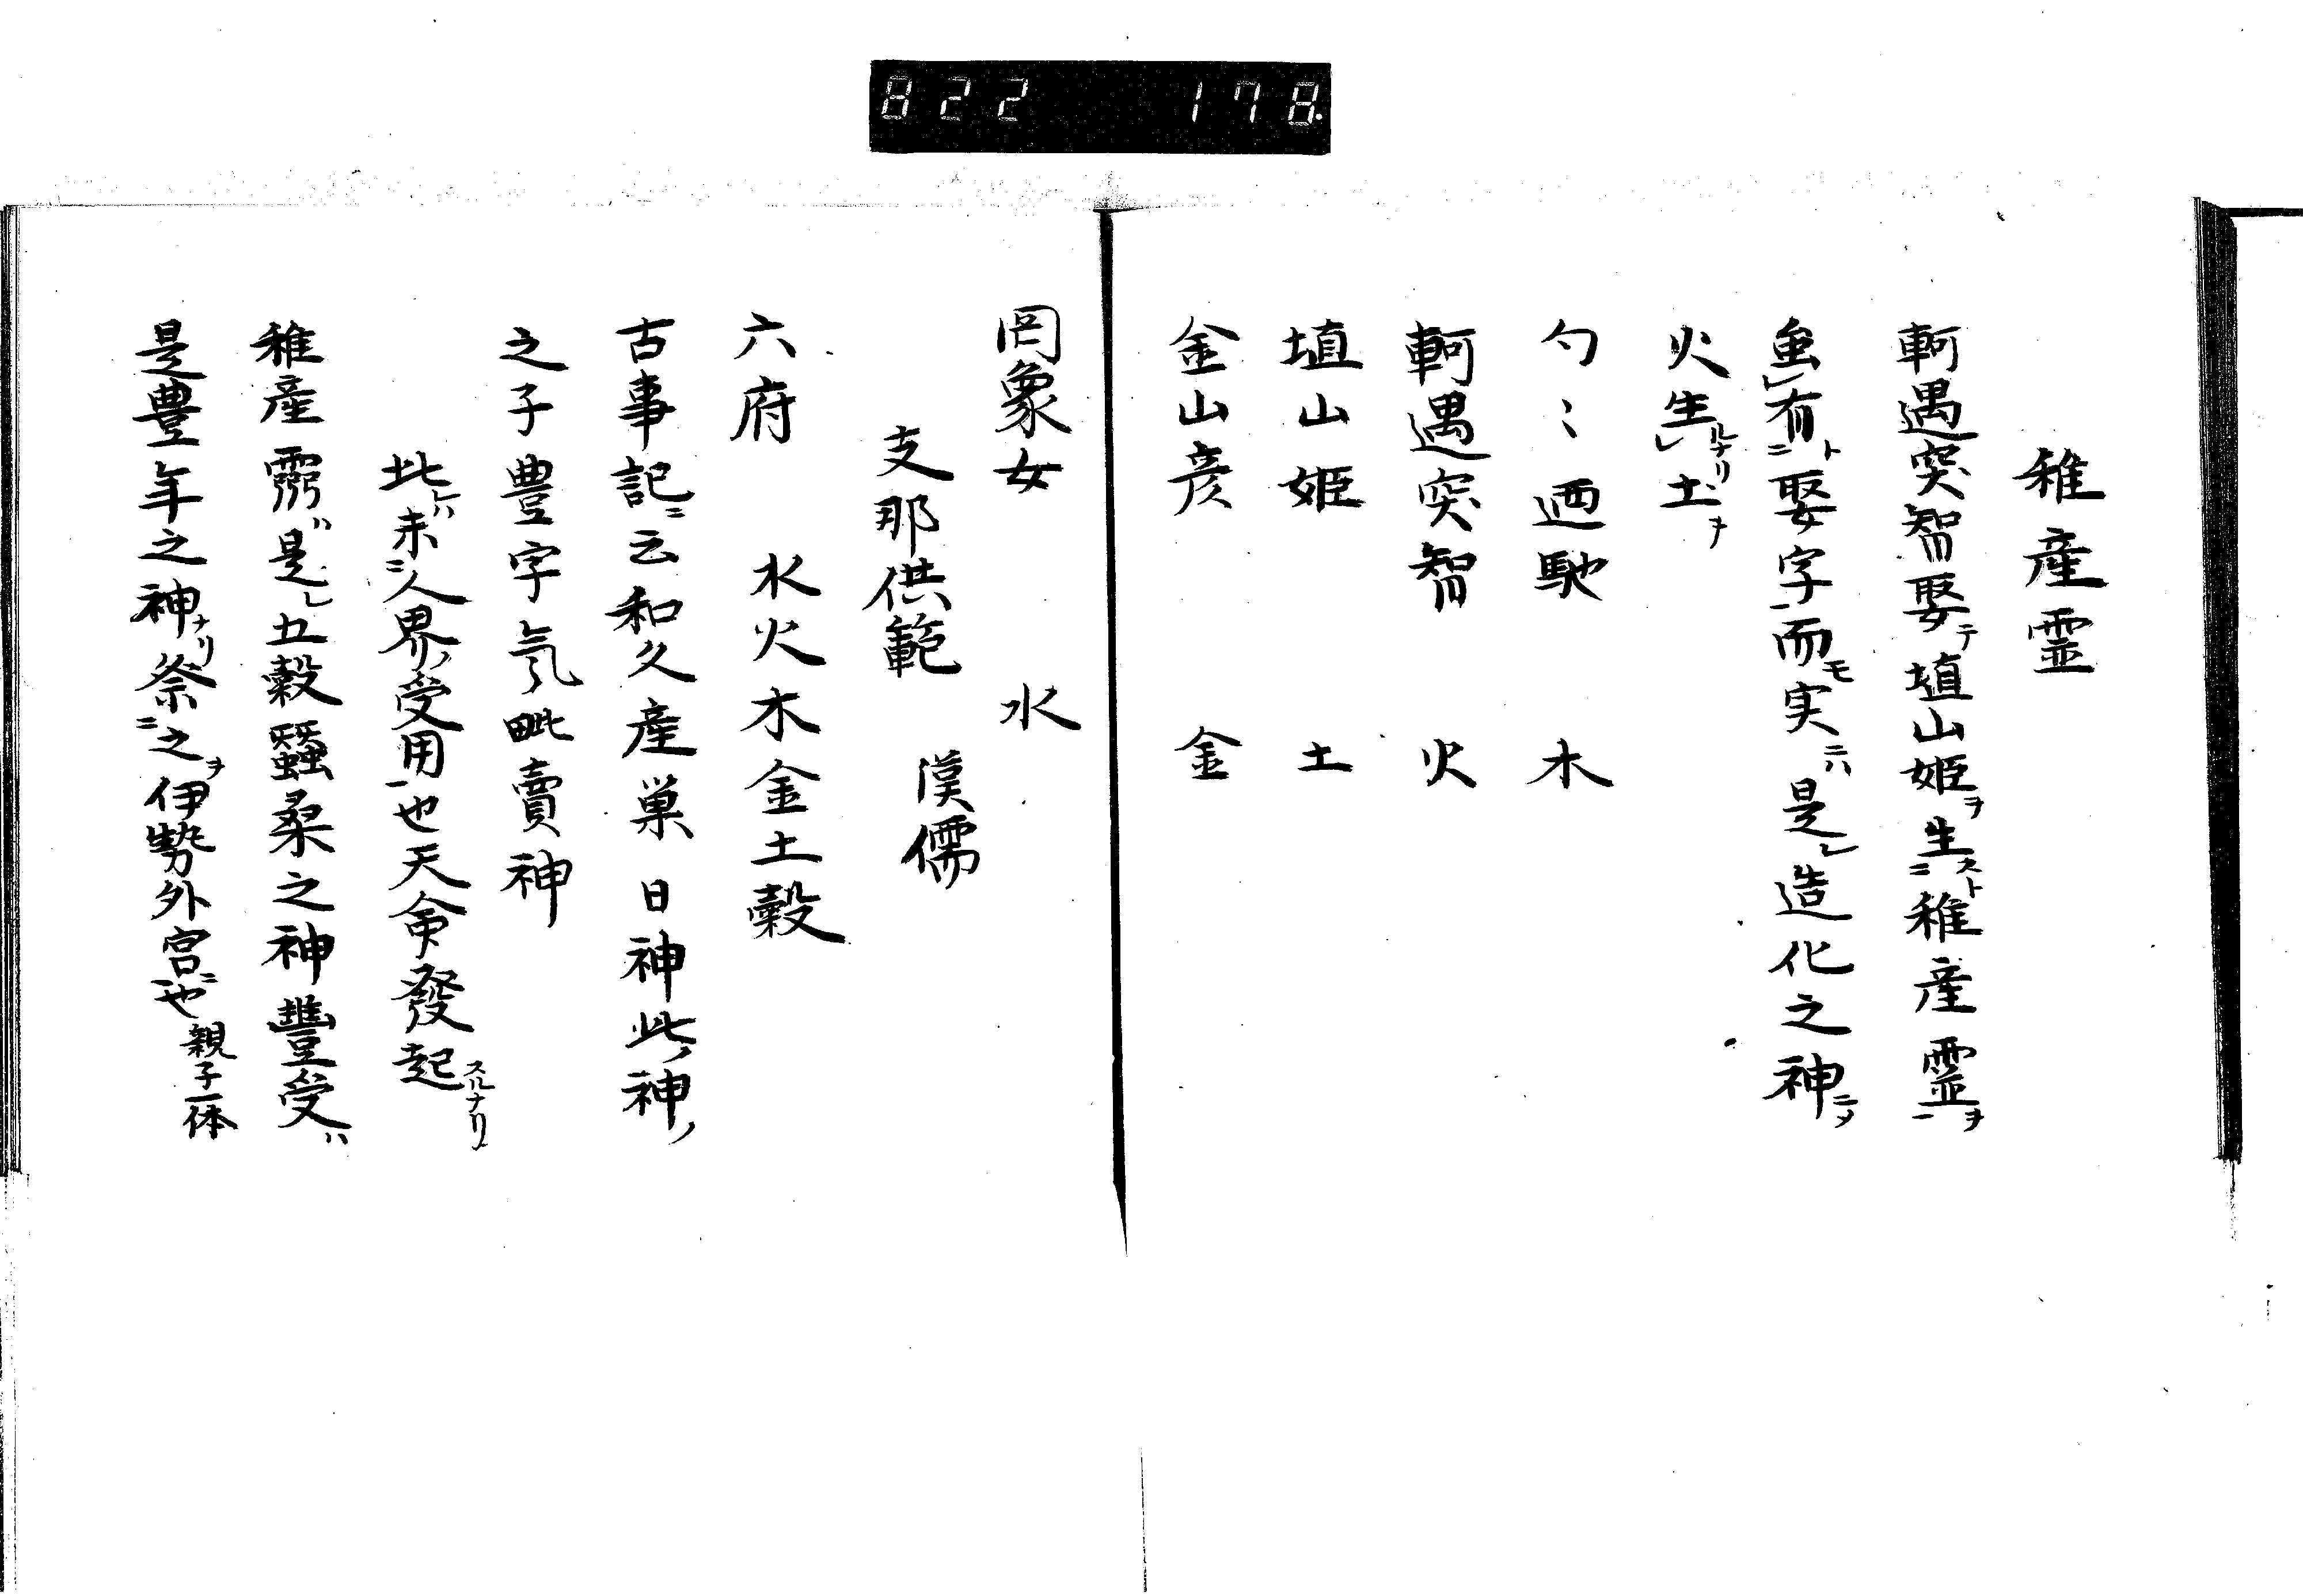 822 178.
稚産霊
軻遇突智娶テ埴山姫ヲ生ニスト稚産霊ヲ一
虽レ有ニト娶字一而モ実ニハ是レ造化之神ニメ
火生レルナリ土ヲ
勺〻迺馳 木
軻遇突智 火
埴山姫 土
金山彦 金
罔象女 水
支那供範 漢儒
六府 水火木金土穀
古事記ニ云和久産巣日神此ノ神ノ
之子豊字氣毗賣神
此ケハ未ニ人界ノ受用一也天命發起スルナリ
稚産霛ハ是レ五穀蠶桑之神豐受ハ
是豊年之神ナリ祭ニ之ヲ伊勢外宮ニ也 親子一体